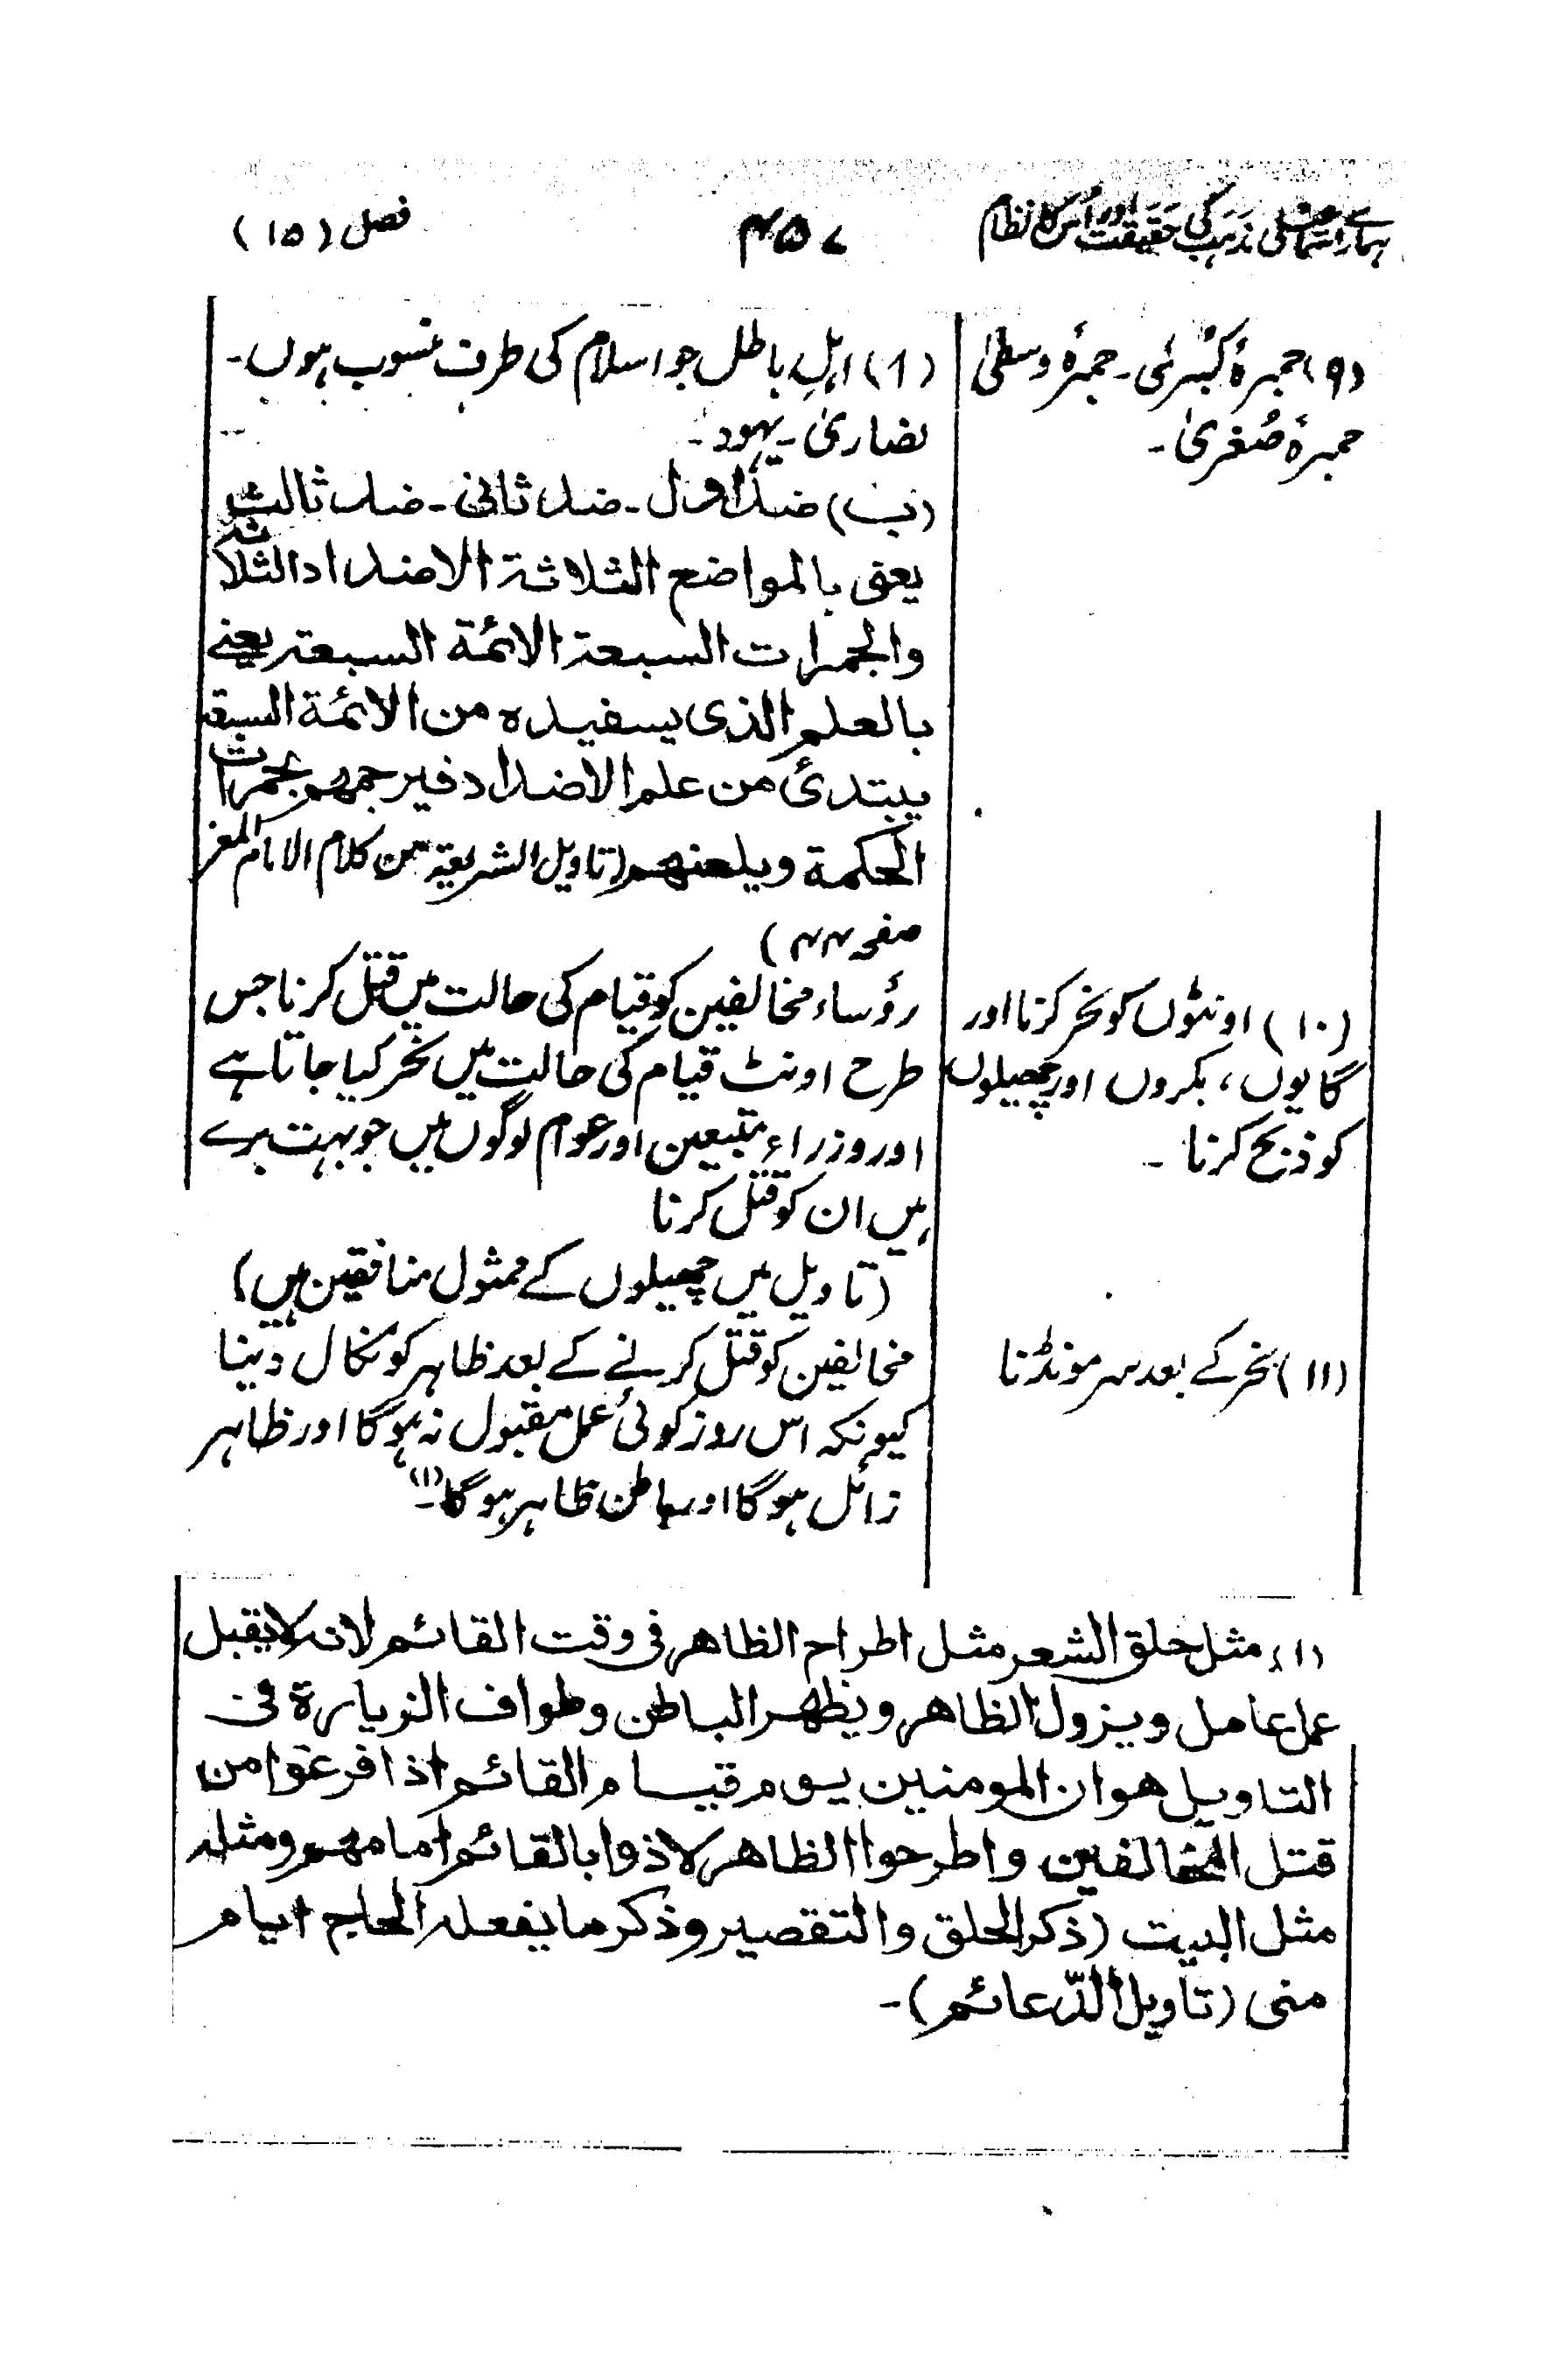 ہمارے اسماعیلی مذہب کی حقیقت اور اُس کا نظام
۴۵۷
فصل (۱۵)
(۹) جمرۂ کبُریٰ۔ جمرۂ وسطیٰ
جمرۂ صُغریٰ۔
(ا) اہلِ باطل جو اسلام کی طرف منسوب ہوں۔
نصاریٰ۔ یہود۔
(ب) ضد اول۔ ضد ثانی۔ ضد ثالث
یعنی بالمواضع الثلاثۃ الاضداد الثلاثہ
والجمرات السبعۃ الائمۃ السبعۃ یعنے
بالعلم الذی یسفیدہ من الائمۃ السبعۃ
یبتدئ من علم الاضداد فیرجمھم بجمرات
الحکمۃ ویلعنھم (تاویل الشریعۃ من کلام الامام المعز
صفحہ ۴۴)
(۱۰) اونٹوں کو نحر کرنا اور
گایوں، بکروں اور مچھیلوں
کو ذبح کرنا ۔
رؤساء مخالفین کو قیام کی حالت میں قتل کرنا جس
طرح اونٹ قیام کی حالت میں نحر کیا جاتا ہے
اور وزراء متبعین اور عوام لوگوں میں جو بہت برے
ہیں ان کو قتل کرنا
(تاویل میں مچھیلوں کے ممثول منافقین ہیں)
(۱۱) نحر کے بعد سر مونڈنا
مخالفین کو قتل کرنے کے بعد ظاہر کو نکال دینا
کیونکہ اس روز کوئی عمل مقبول نہ ہوگا اور ظاہر
زائل ہوگا اور باطن ظاہر ہوگا۔(۱)
(۱) مثل حلق الشعر مثل اطراح الظاھر فی وقت القائم لانہ لا یقبل
عمل عامل ویزول الظاھر ویظھر الباطن وطواف الزیارۃ فی
التاویل ھو ان المومنین یوم قیام القائم اذا فرغوا من
قتل المخالفین واطرحوا الظاھر لاذوا بالقائم امامھم ومثلہ
مثل البیت (ذکر الحلق والتقصیر وذکر ما یفعلہ الحاج ایام
منی (تاویل الدّعائم)۔